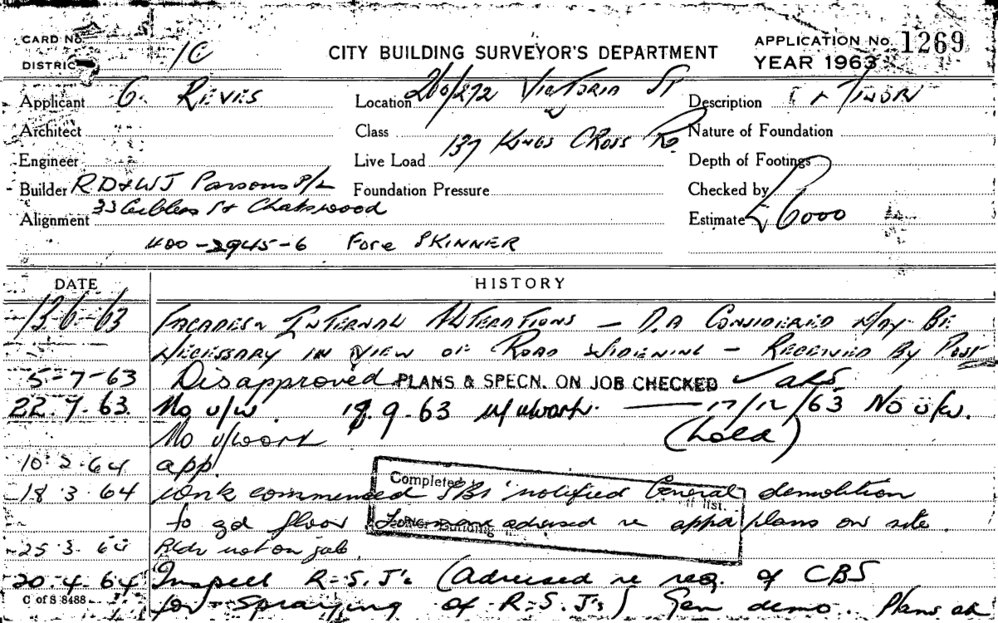 CARD No.
DISTRICT 1C
CITY BUILDING SURVEYOR'S DEPARTMENT
APPLICATION No. 1269
YEAR 1963
Applicant G. REVES
Location 260/272 VICTORIA ST
Description
Architect
Class 137 KINGS CROSS RD.
Nature of Foundation
Engineer
Live Load
Depth of Footings
Builder R D & W J Parsons P/L
Foundation Pressure
Checked by
Alignment 33 St Chatswood
Estimate £6000
400-2945-6 Fore SKINNER
DATE HISTORY
13-6-63 FACADES & INTERNAL ALTERATIONS — D.A CONSIDERED MAY BE
NECESSARY IN VIEW OF ROAD WIDENING — RECEIVED BY POST
5-7-63 Disapproved PLANS & SPECN. ON JOB CHECKED ✓
22.7.63. No u/w. 9.63 — 17/12/63 No u/w.
No u/work
10.2.64 app
18.3.64 work commenced notified General demolition
to gd floor advised re appd plans on site.
Completed
list.
25.3.64 Bldr not on job.
20.4.64 Inspect R-S.J's (Advised re req. of CBS
C of S 8488 for spraying of R-S.J's) Gen demo. Plans